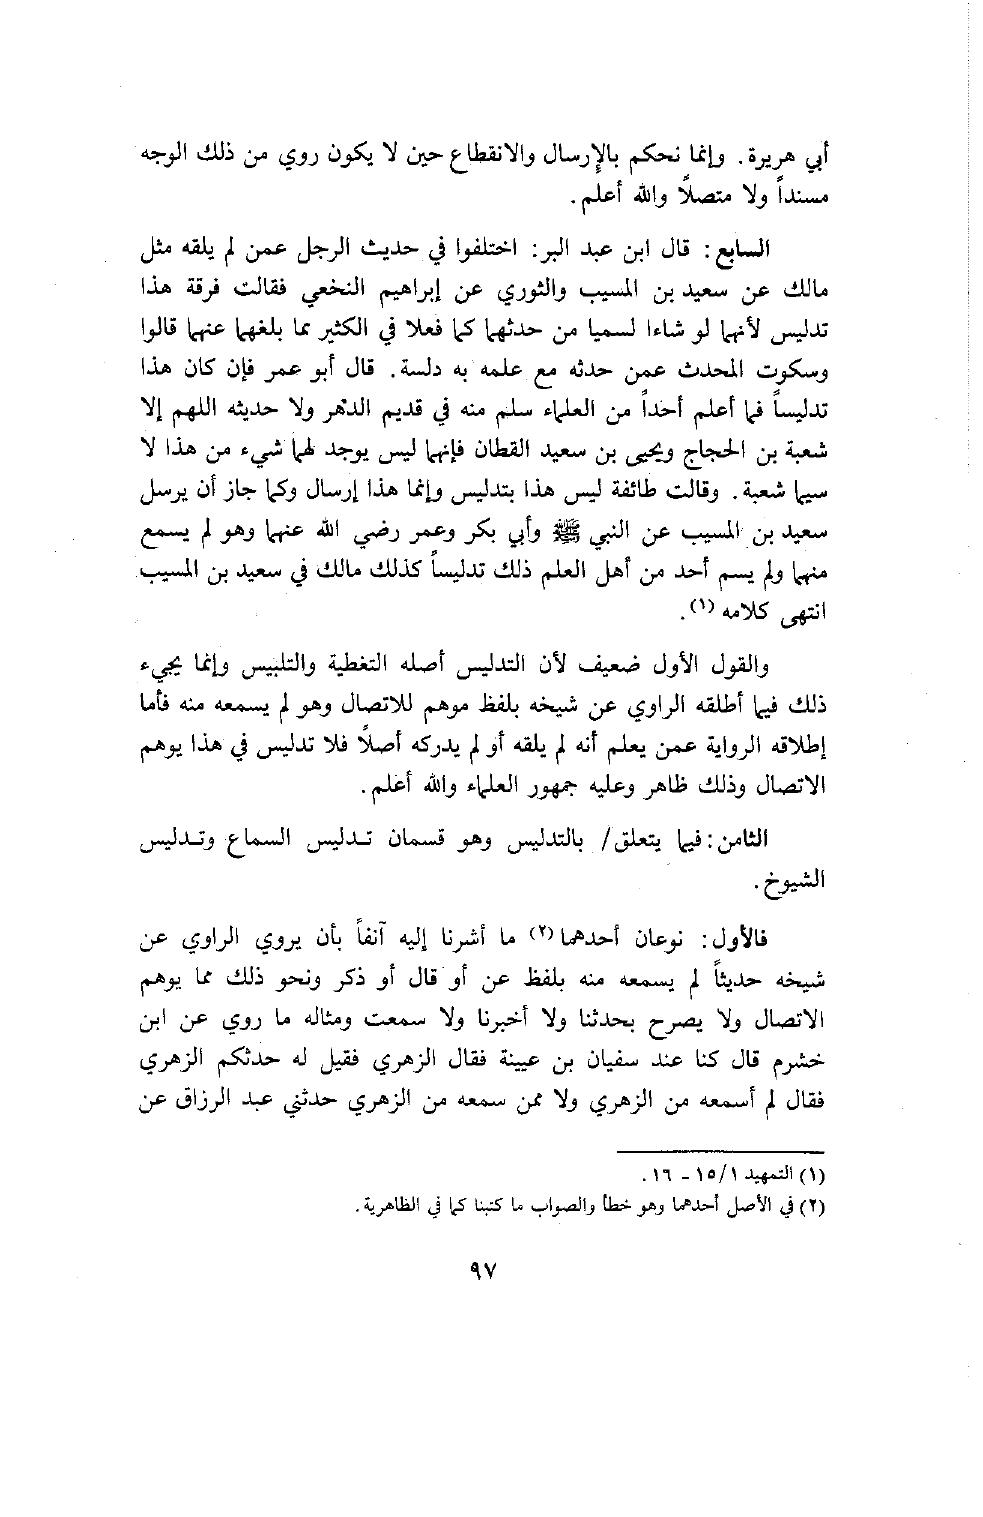 أبي هريرة. وإنما نحكم بالإرسال والانقطاع حين لا يكون روي من ذلك الوجه
مسنداً ولا متصلاً والله أعلم.
السابع: قال ابن عبد البر: اختلفوا في حديث الرجل عمن لم يلقه مثل
مالك عن سعيد بن المسيب والثوري عن إبراهيم النخعي فقالت فرقة هذا
تدليس لأنهما لو شاءا لسميا من حدثهما كما فعلا في الكثير مما بلغهما عنهما قالوا
وسكوت المحدث عمن حدثه مع علمه به دلسة. قال أبو عمر فإن كان هذا
تدليساً فما أعلم أحداً من العلماء سلم منه في قديم الدهر ولا حديثه اللهم إلا
شعبة بن الحجاج ويحيى بن سعيد القطان فإنهما ليس يوجد لهما شيء من هذا لا
سيما شعبة. وقالت طائفة ليس هذا بتدليس وإنما هذا إرسال وكما جاز أن يرسل
سعيد بن المسيب عن النبي ﷺ وأبي بكر وعمر رضي الله عنهما وهو لم يسمع
منهما ولم يسم أحد من أهل العلم ذلك تدليساً كذلك مالك في سعيد بن المسيب
انتهى كلامه (١).
والقول الأول ضعيف لأن التدليس أصله التغطية والتلبيس وإنما يجيء
ذلك فيما أطلقه الراوي عن شيخه بلفظ موهم للاتصال وهو لم يسمعه منه فأما
إطلاقه الرواية عمن يعلم أنه لم يلقه أو لم يدركه أصلاً فلا تدليس في هذا يوهم
الاتصال وذلك ظاهر وعليه جمهور العلماء والله أعلم.
الثامن: فيما يتعلق/ بالتدليس وهو قسمان تدليس السماع وتدليس
الشيوخ.
فالأول: نوعان أحدهما (٢) ما أشرنا إليه آنفاً بأن يروي الراوي عن
شيخه حديثاً لم يسمعه منه بلفظ عن أو قال أو ذكر ونحو ذلك مما يوهم
الاتصال ولا يصرح بحدثنا ولا أخبرنا ولا سمعت ومثاله ما روي عن ابن
خشرم قال كنا عند سفيان بن عيينة فقال الزهري فقيل له حدثكم الزهري
فقال لم أسمعه من الزهري ولا ممن سمعه من الزهري حدثني عبد الرزاق عن
(١) التمهيد ١٥/١ - ١٦.
(٢) في الأصل أحدهما وهو خطأ والصواب ما كتبنا كما في الظاهرية.
٩٧